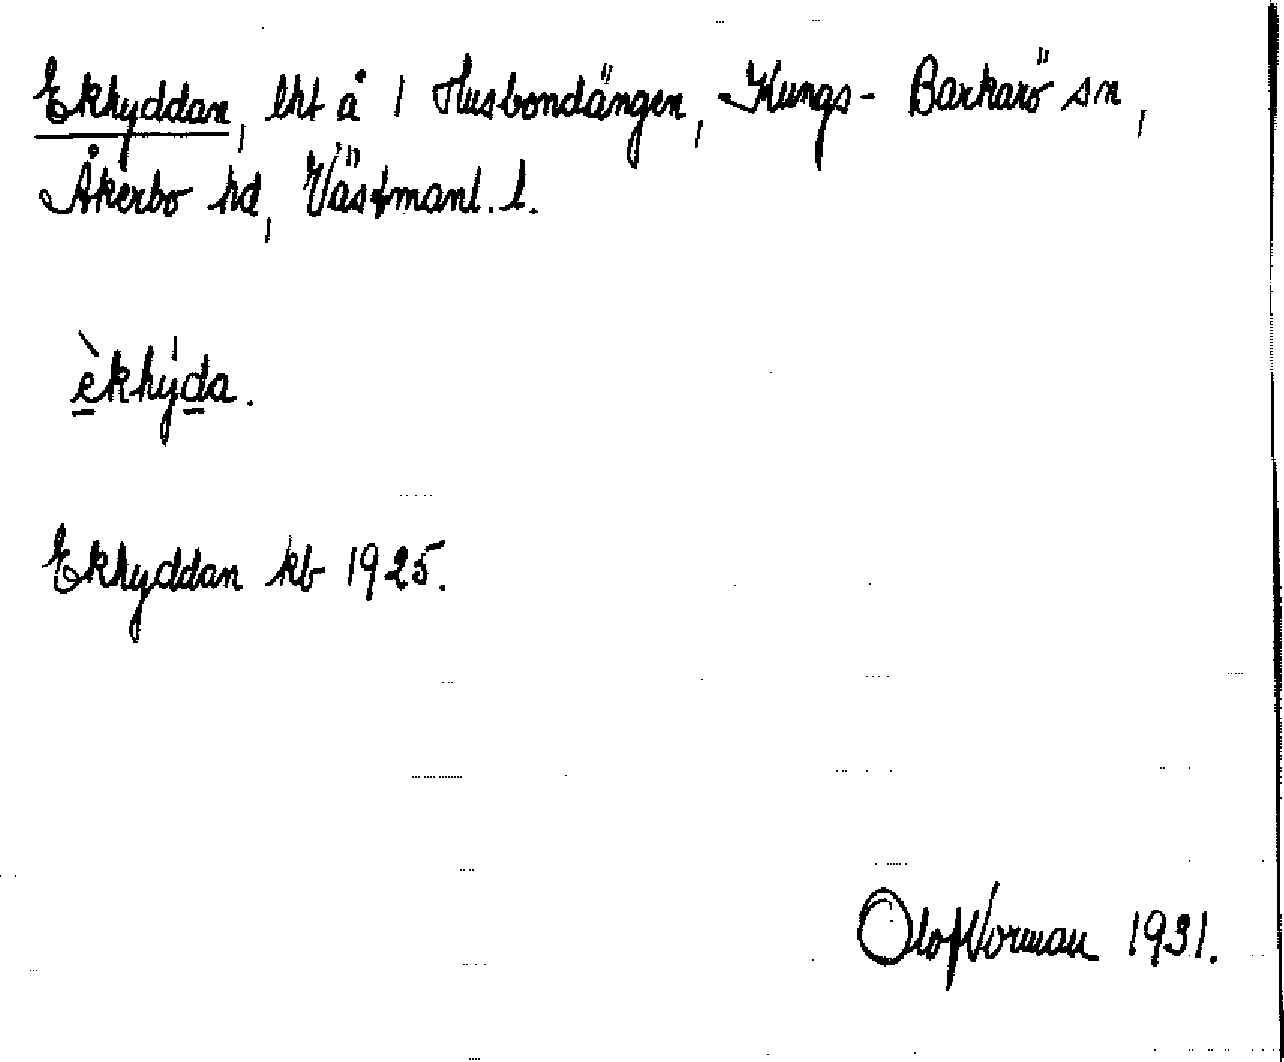 Ekhyddan, lht å 1 Husbondängen, Kungs-Barkarö sn,
Åkerbo hd, Västmanl. l.
èkhy̍da.
Ekhyddan kb 1925.
Olof Norman 1931.